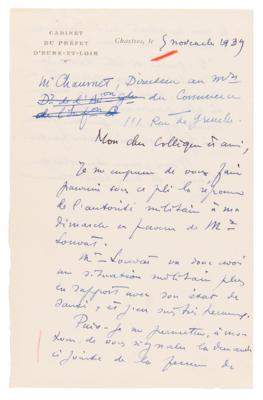 CABINET
DU PRÉFET
D'EURE-ET-LOIR
Chartres, le 5 novembre 1939
Mr Chaumet, Directeur au Mre
du Commerce
111 Rue de Grenelle
Mon cher Collègue et ami,
Je m'empresse de vous faire
parvenir sous ce pli la réponse
de l'autorité militaire à ma
démarche en faveur de Mr
Louvat.
Mr Louvat va donc avoir
une situation militaire plus
en rapport avec son état de
santé, et j'en suis très heureux.
Puis-je me permettre, à mon
tour, de vous signaler la demande
ci jointe de la femme de